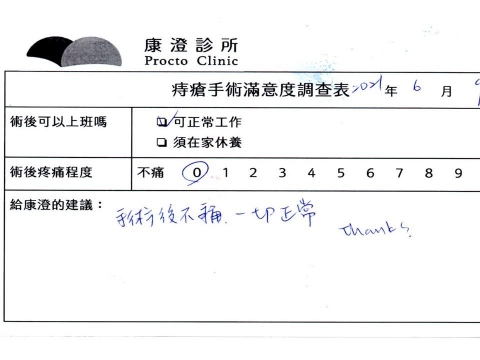 康澄診所
Procto Clinic
痔瘡手術滿意度調查表 2021 年 6 月
術後可以上班嗎
☑ 可正常工作
☐ 須在家休養
術後疼痛程度 不痛 0 1 2 3 4 5 6 7 8 9
給康澄的建議：
手術後不痛、一切正常
thanks